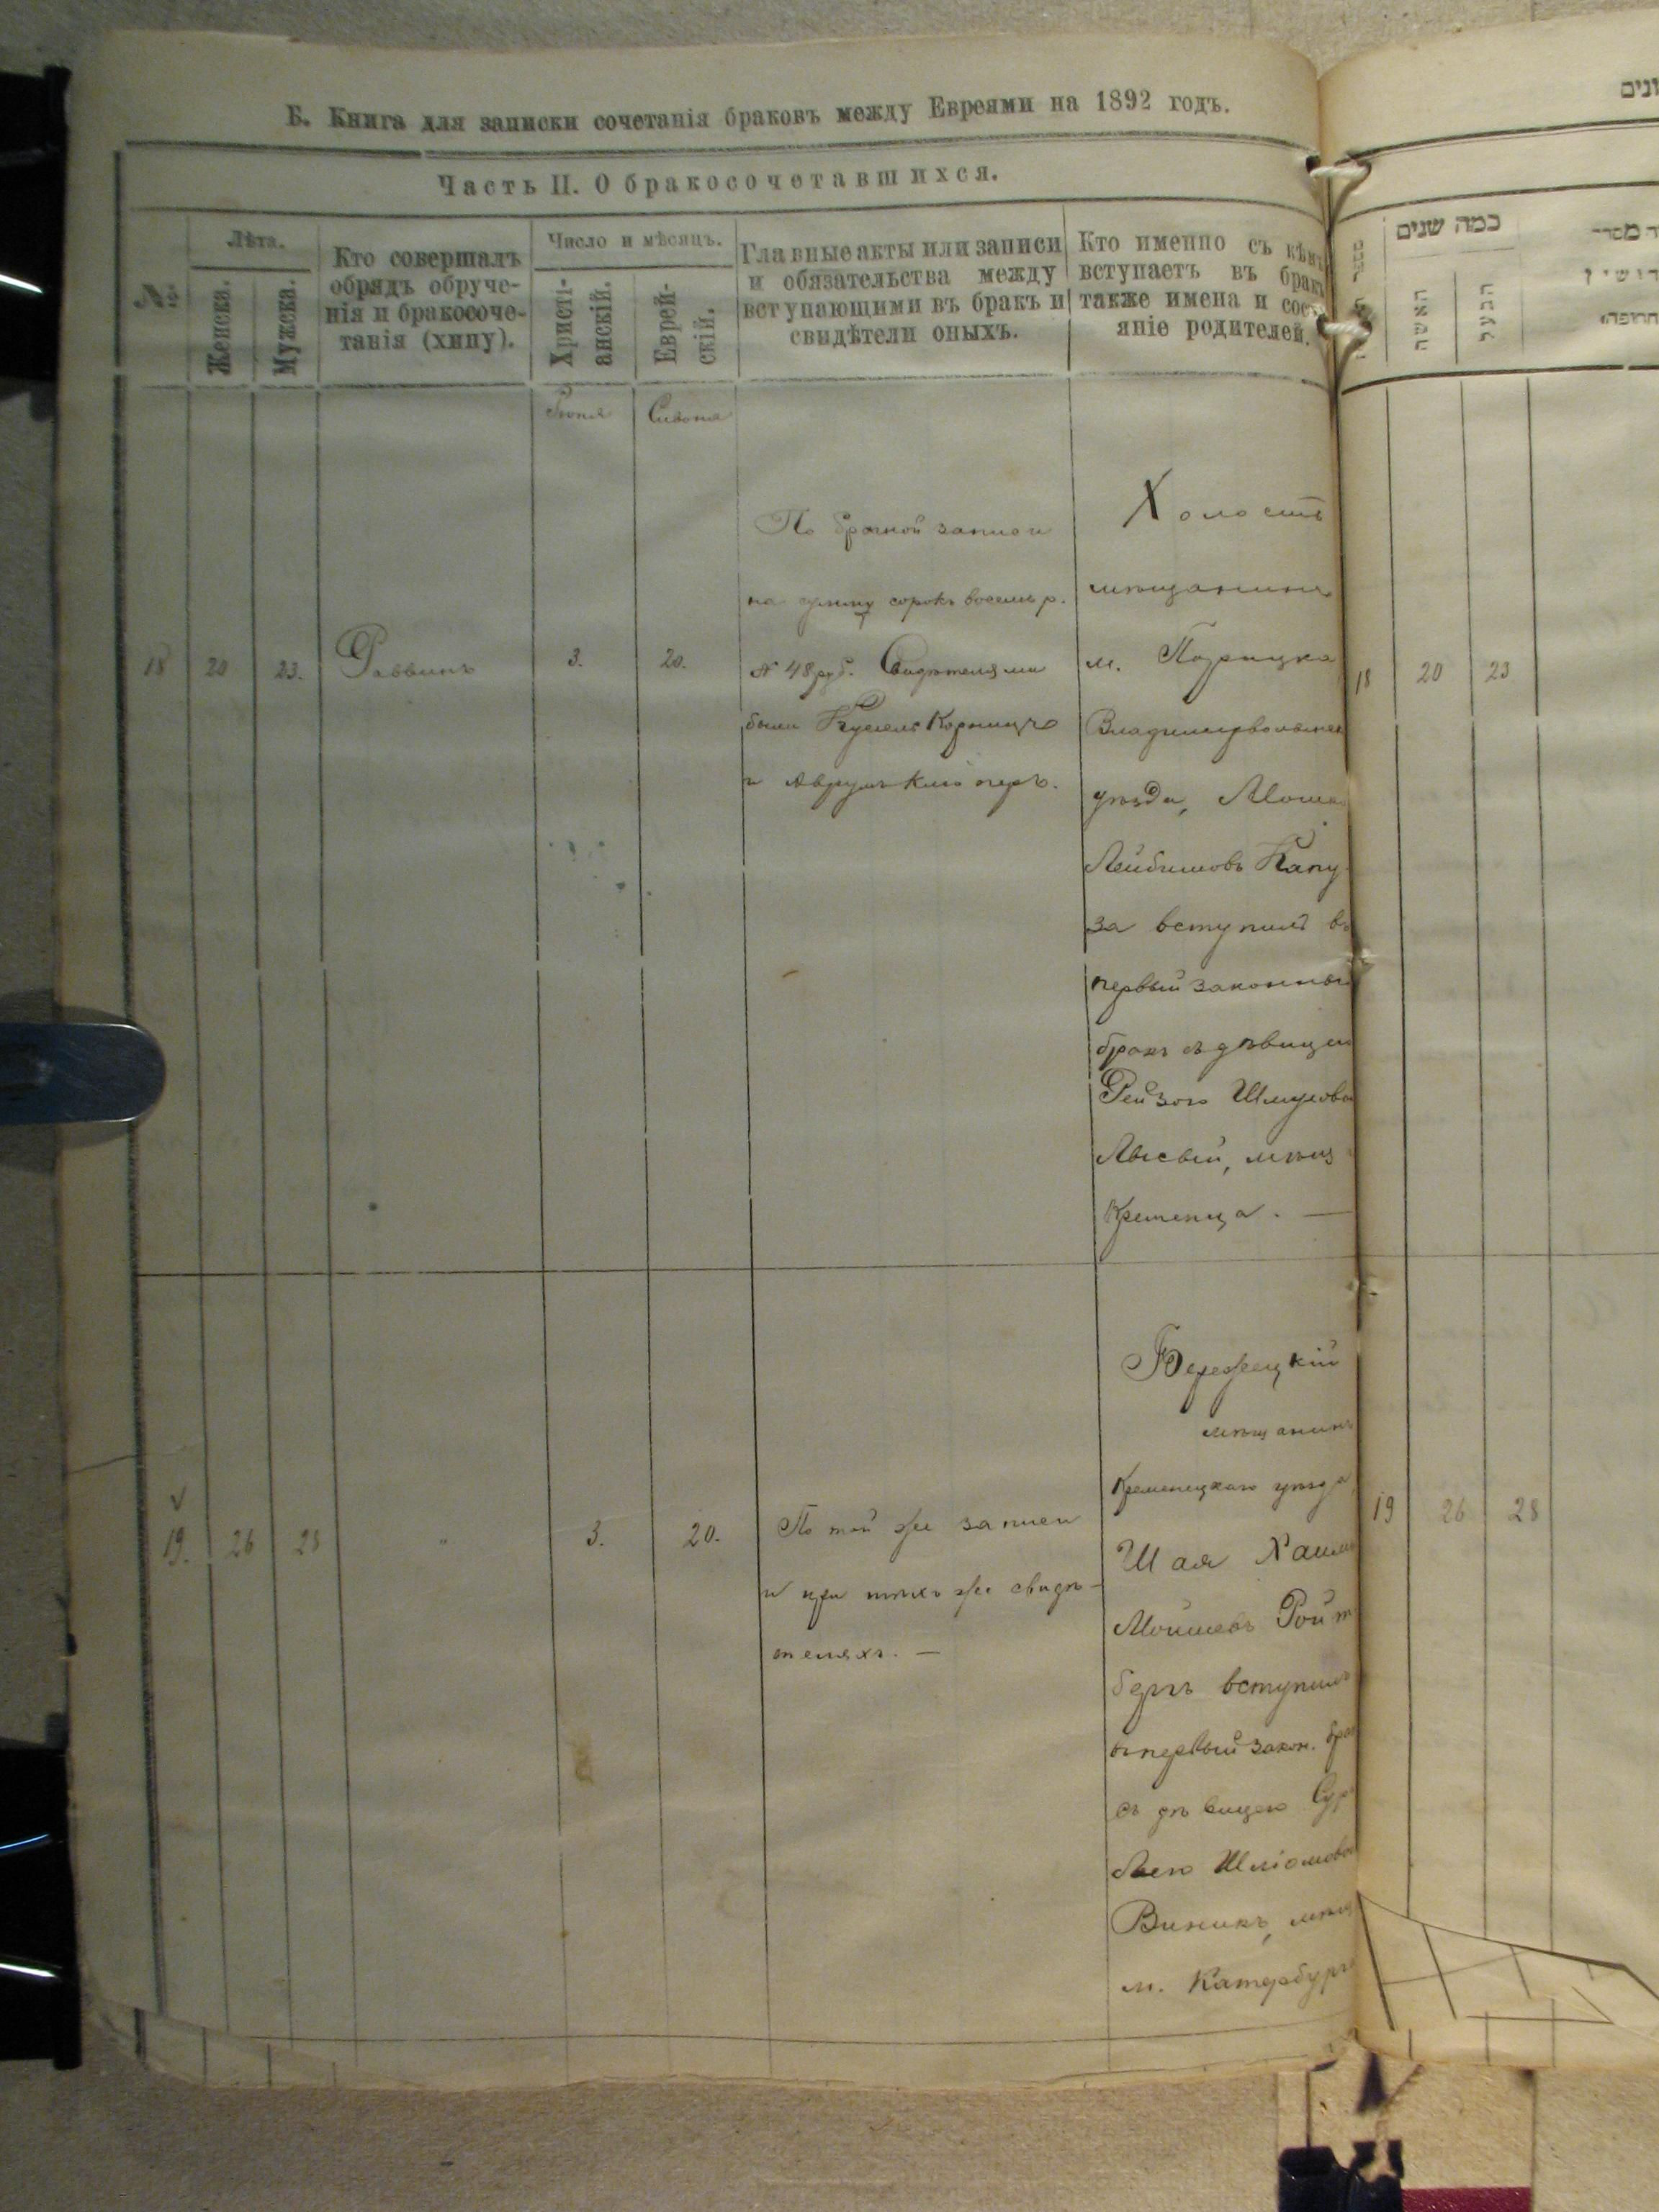 Б. Книга для записки сочетанія браковъ между Евреями на 1892 годъ.
Часть II. О бракосочетавшихся.
№
Лѣта.
Женска.
Мужска.
Кто совершалъ
обрядъ обруче-
нія и бракосоче-
танія (хипу).
Число и мѣсяцъ.
Христі-
анскій.
Еврей-
скій.
Главные акты или записи
и обязательства между
вступающими въ бракъ и
свидѣтели оныхъ.
Кто именно съ кѣмъ
вступаетъ въ бракъ
также имена и сост-
яніе родителей.
Іюня
Сивана
18
20
23.
Раввинъ
3.
20.
По брачной записи
на сумму сорокъ восемь р.
№ 48 руб. Свидѣтелями
были
и Аврумъ
Холостъ
мѣщанинъ
м. Порицка
Владимирволынск
уѣзда, Мошко
Лейбишовъ Капу
за вступилъ въ
первый законный
бракъ съ дѣвицею
Рейзою Шмулевой
Лысый, мѣщ
Кременца. —
19.
26
28
"
3.
20.
По той же записи
и при тѣхъ же свидѣ-
теляхъ. —
Бережецкій
мѣщанинъ
Кременецкаго уѣзда
Шая Хаимъ
Мойшевъ Ройт
бергъ вступилъ
въ первый закон. брак
съ дѣвицею Сур
Леею Шліомовой
Виникъ, мѣщ
м. Катербург
כמה שנים
האשה
הבעל
18
20
23
19
26
28